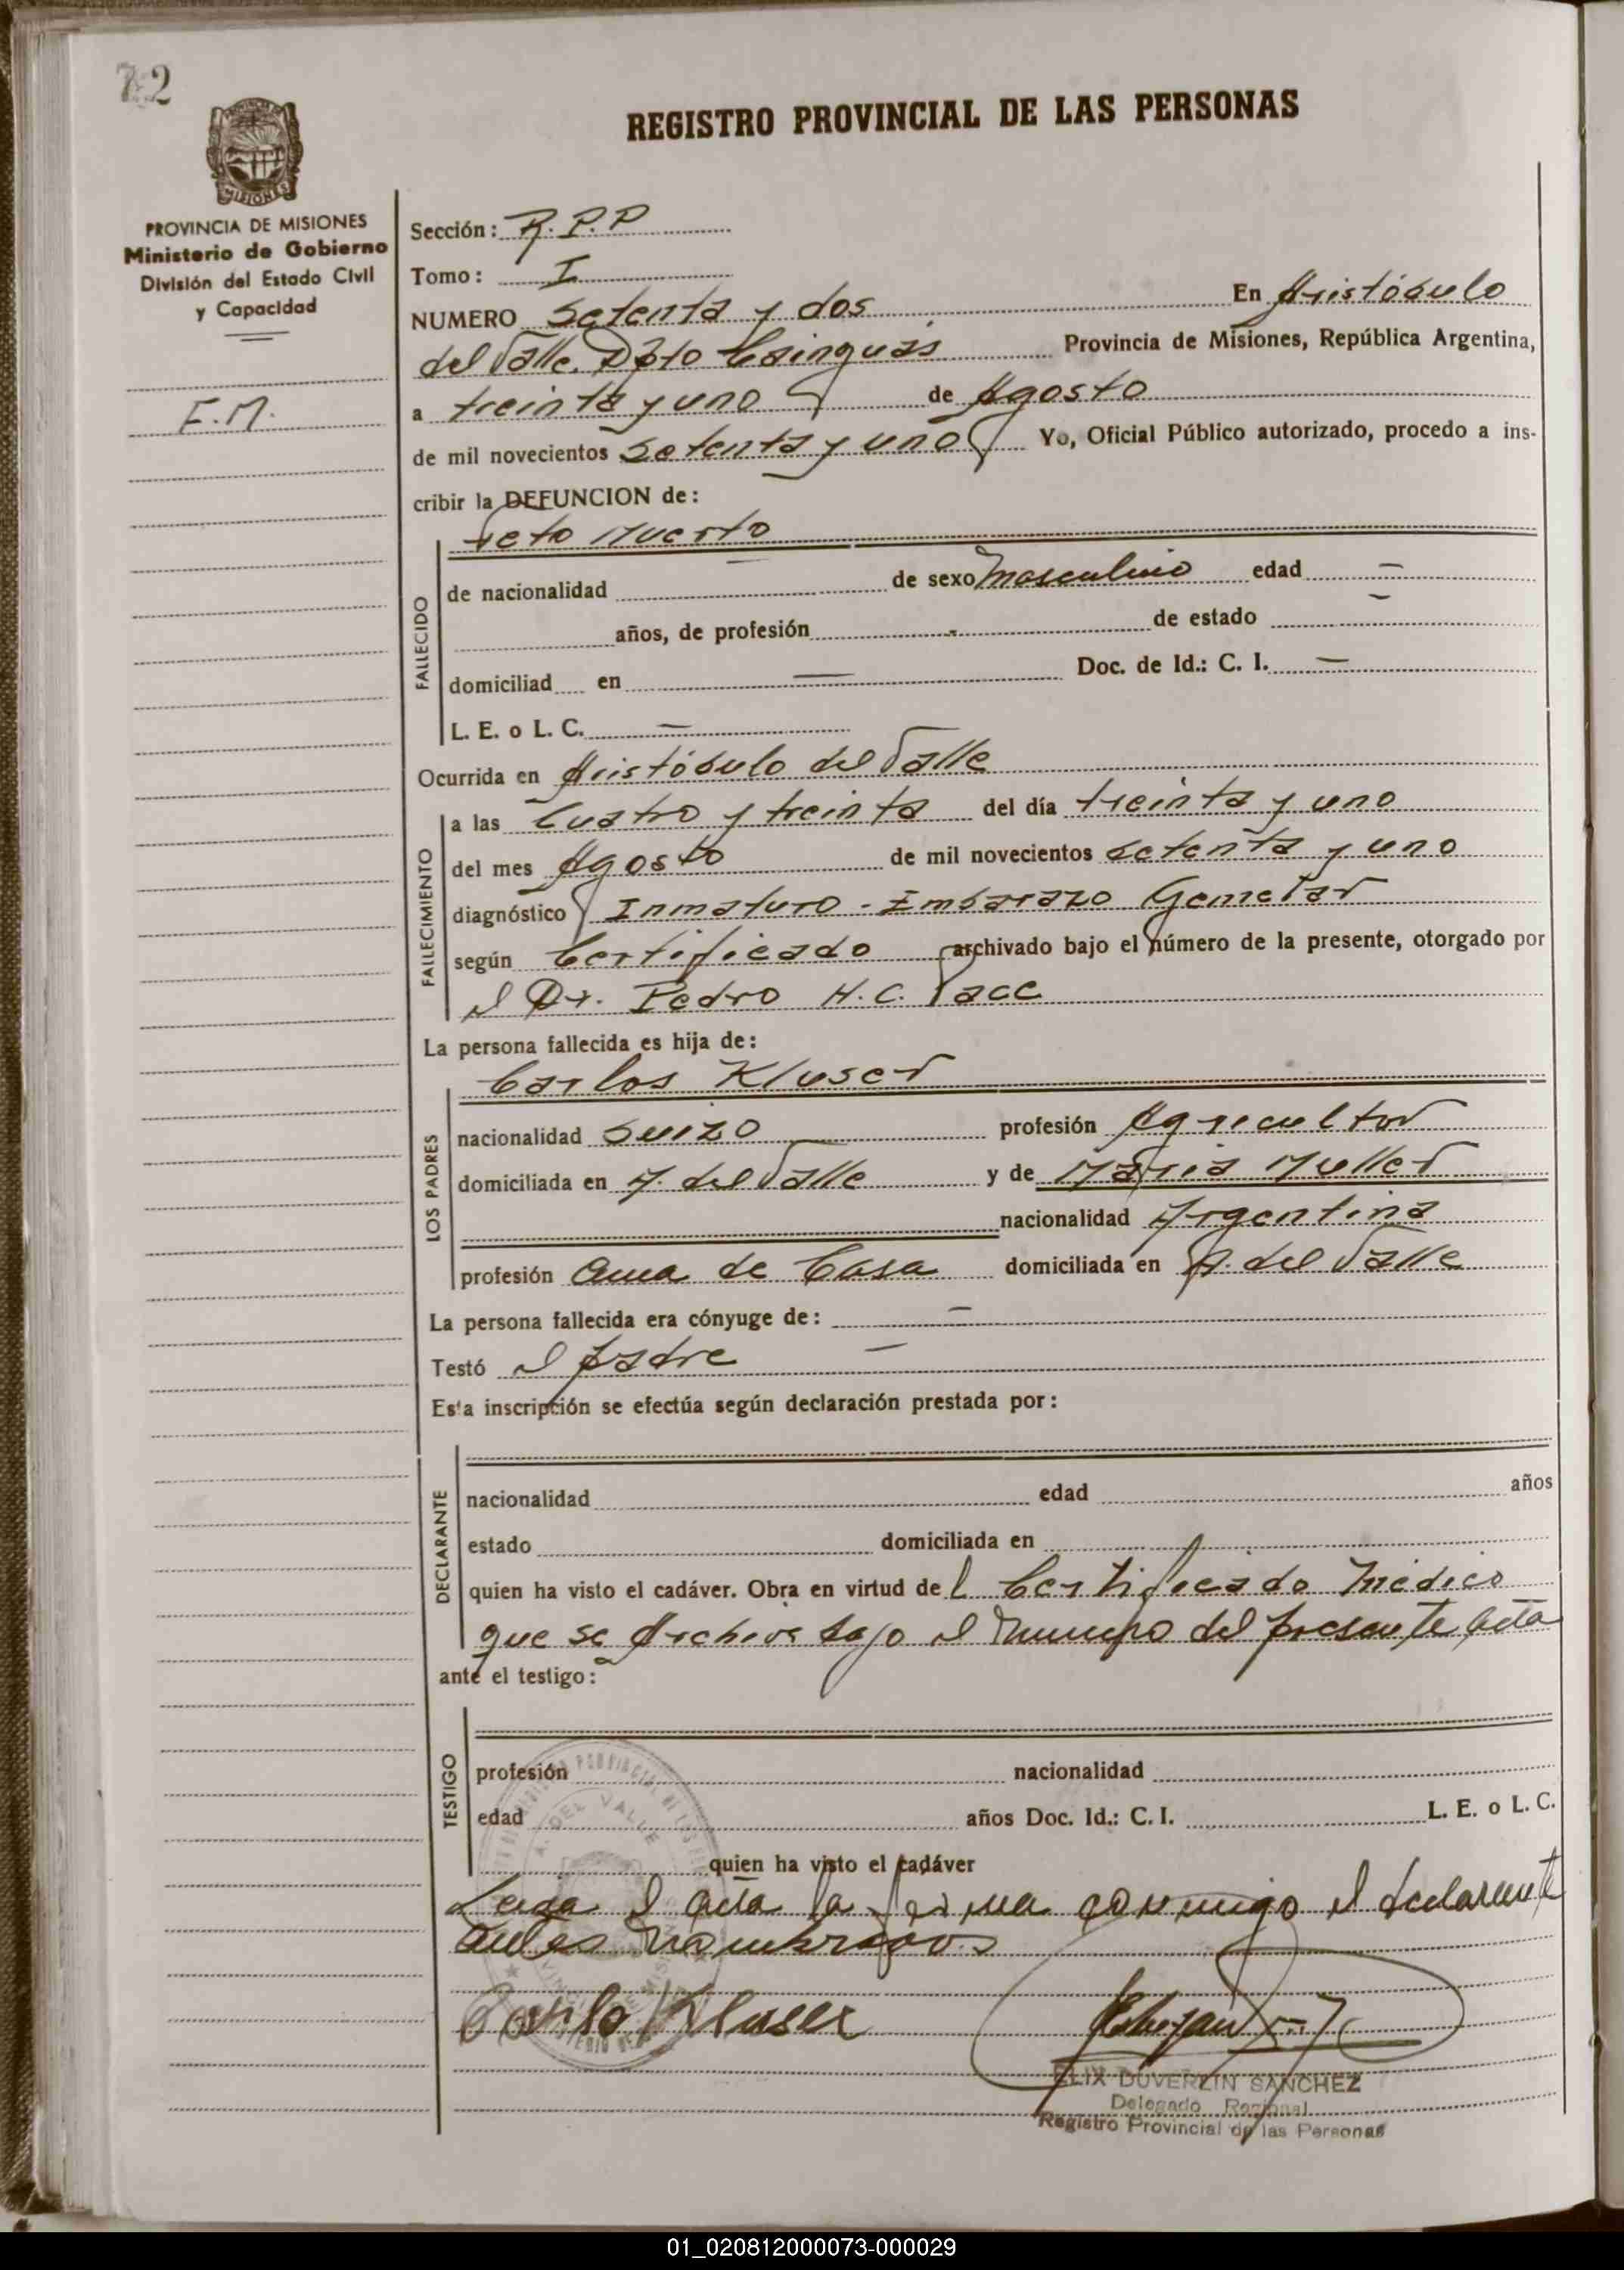 72
REGISTRO PROVINCIAL DE LAS PERSONAS
MISIONES
PROVINCIA DE MISIONES
Ministerio de Gobierno
División del Estado Civil
y Capacidad
F.M.
Sección: R.P.P
Tomo: I
NUMERO Setenta y dos En Aristóbulo
del Valle. Dpto Cainguás Provincia de Misiones, República Argentina,
a treinta y uno de Agosto
de mil novecientos Setenta y uno Yo, Oficial Público autorizado, procedo a ins-
cribir la DEFUNCION de:
Feto Muerto
FALLECIDO
de nacionalidad — de sexo masculino edad —
años, de profesión - de estado —
domiciliad en — Doc. de Id.: C. I. —
L. E. o L. C. —
Ocurrida en Aristóbulo del Valle
FALLECIMIENTO
a las Cuatro y treinta del día treinta y uno
del mes Agosto de mil novecientos setenta y uno
diagnóstico Inmaturo - Embarazo Gemelar
según Certificado archivado bajo el número de la presente, otorgado por
el Dr. Pedro H. C. Pace
La persona fallecida es hija de:
Carlos Kluser
LOS PADRES
nacionalidad Suizo profesión Agricultor
domiciliada en A. del Valle y de María Muller
nacionalidad Argentina
profesión Ama de Casa domiciliada en A. del Valle
La persona fallecida era cónyuge de: —
Testó el padre —
Esta inscripción se efectúa según declaración prestada por:
DECLARANTE
nacionalidad edad años
estado domiciliada en
quien ha visto el cadáver. Obra en virtud del Certificado Médico
que se Archiva bajo el número del presente acta
ante el testigo:
TESTIGO
profesión nacionalidad
edad años Doc. Id.: C. I. L. E. o L. C.
quien ha visto el cadáver
Leida el acta la firma conmigo el declarante
antes nombrados
Kluser
A. DEL VALLE
ELIX DUVERLIN SANCHEZ
Delegado Regional
Registro Provincial de las Personas
01_020812000073-000029